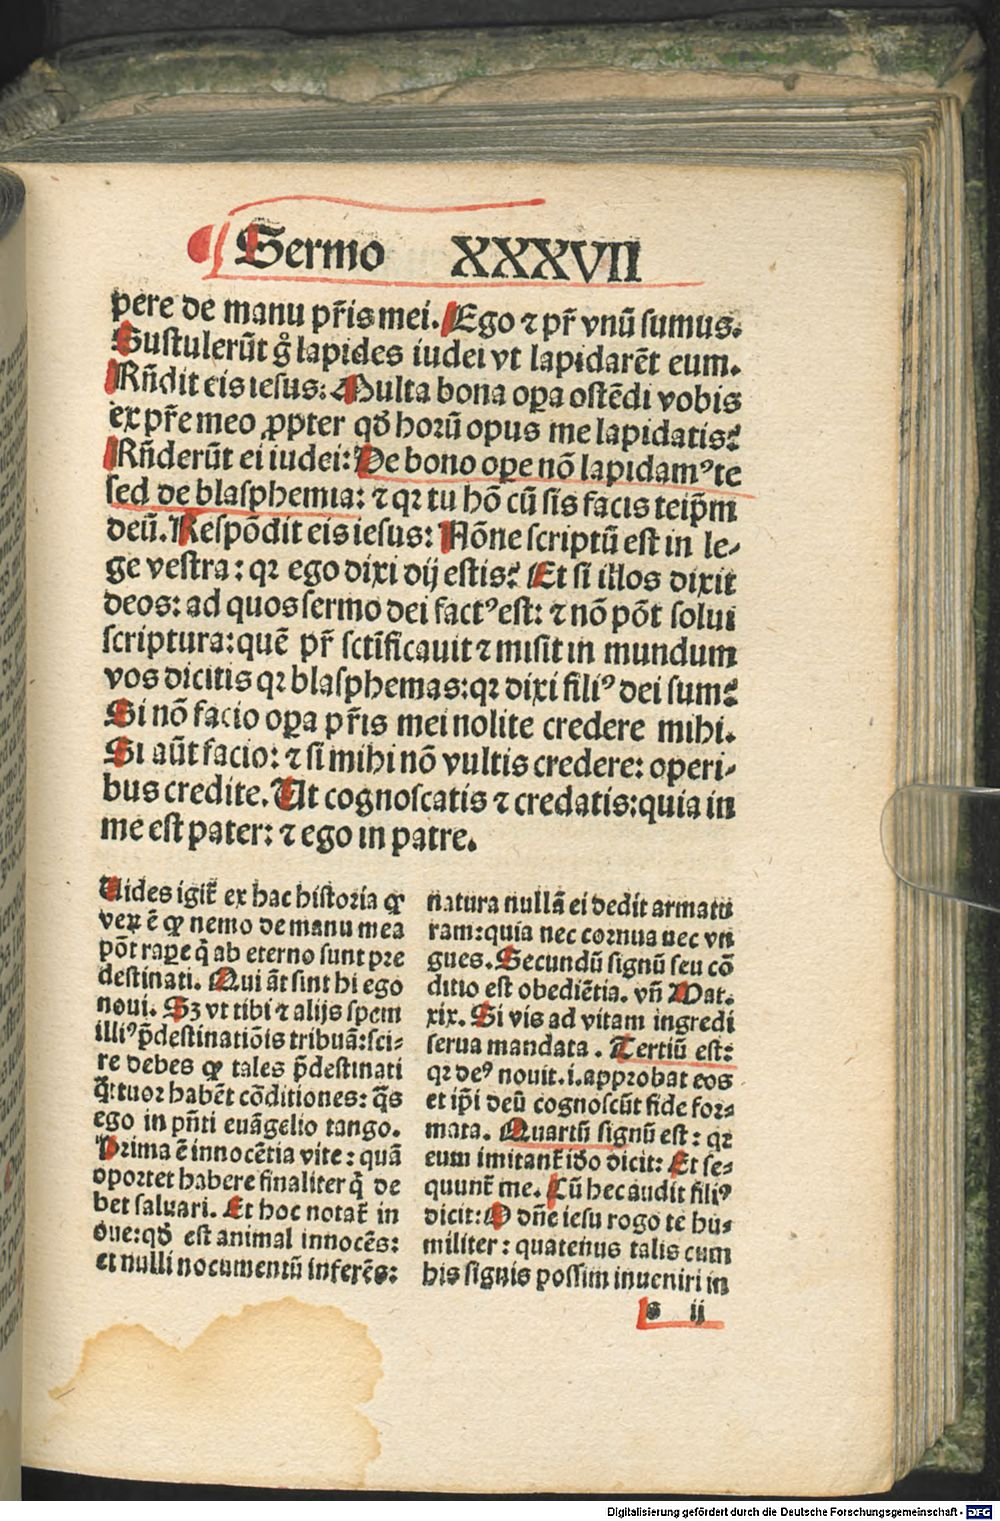 Sermo XXXVII
pere de manu pr̃is mei. Ego ⁊ pr̃ vnũ sumus.
Sustulerũt g̊ lapides iudei vt lapidarẽt eum.
Rñdit eis iesus: Multa bona oꝑa ostẽdi vobis
ex pr̃e meo ꝓpter qđ horũ opus me lapidatis?
Rñderũt ei iudei: De bono oꝑe nõ lapidamꝰ te
sed de blasphemia: ⁊ qꝛ tu hõ cũ sis facis teip̃m
deũ. Respõdit eis iesus: Nõne scriptũ est in le-
ge vestra: qꝛ ego dixi dij estis? Et si illos dixit
deos: ad quos sermo dei factꝰ est: ⁊ nõ põt solui
scriptura: quẽ pr̃ sctĩficauit ⁊ misit in mundum
vos dicitis qꝛ blasphemas: qꝛ dixi filiꝰ dei sum?
Si nõ facio oꝑa pr̃is mei nolite credere mihi.
Si aũt facio: ⁊ si mihi nõ vultis credere: operi-
bus credite. Ut cognoscatis ⁊ credatis: quia in
me est pater: ⁊ ego in patre.
Uides igit̃ ex hac historia ꝙ
veꝝ ẽ ꝙ nemo de manu mea
põt raꝑe q̃ ab eterno sunt pre
destinati. Qui ãt sint hi ego
noui. Sꝫ vt tibi ⁊ alijs spem
illiꝰ p̃destinatiõis tribuã: sci-
re debes ꝙ tales p̃destinati
q̃ttuor habẽt cõditiones: q̃s
ego in pñti euãgelio tango.
Prima ẽ innocẽtia vite: quã
oportet habere finaliter q̃ de
bet saluari. Et hoc notat̃ in
oue: qđ est animal innocẽs:
et nulli nocumentũ inferẽs:
natura nullã ei dedit armatu
ram: quia nec cornua nec vn
gues. Secundũ signũ seu cõ
ditio est obediẽtia. vñ Mat.
xix. Si vis ad vitam ingredi
serua mandata. Tertiũ est:
qꝛ deꝰ nouit .i. approbat eos
et ip̃i deũ cognoscũt fide for-
mata. Quartũ signũ est: qꝛ
eum imitant̃ iđo dicit: Et se-
quunt̃ me. Cũ hec audit filiꝰ
dicit: O dñe iesu rogo te hu-
militer: quatenus talis cum
his signis possim inueniri in
s ij
Digitalisierung gefördert durch die Deutsche Forschungsgemeinschaft - DFG